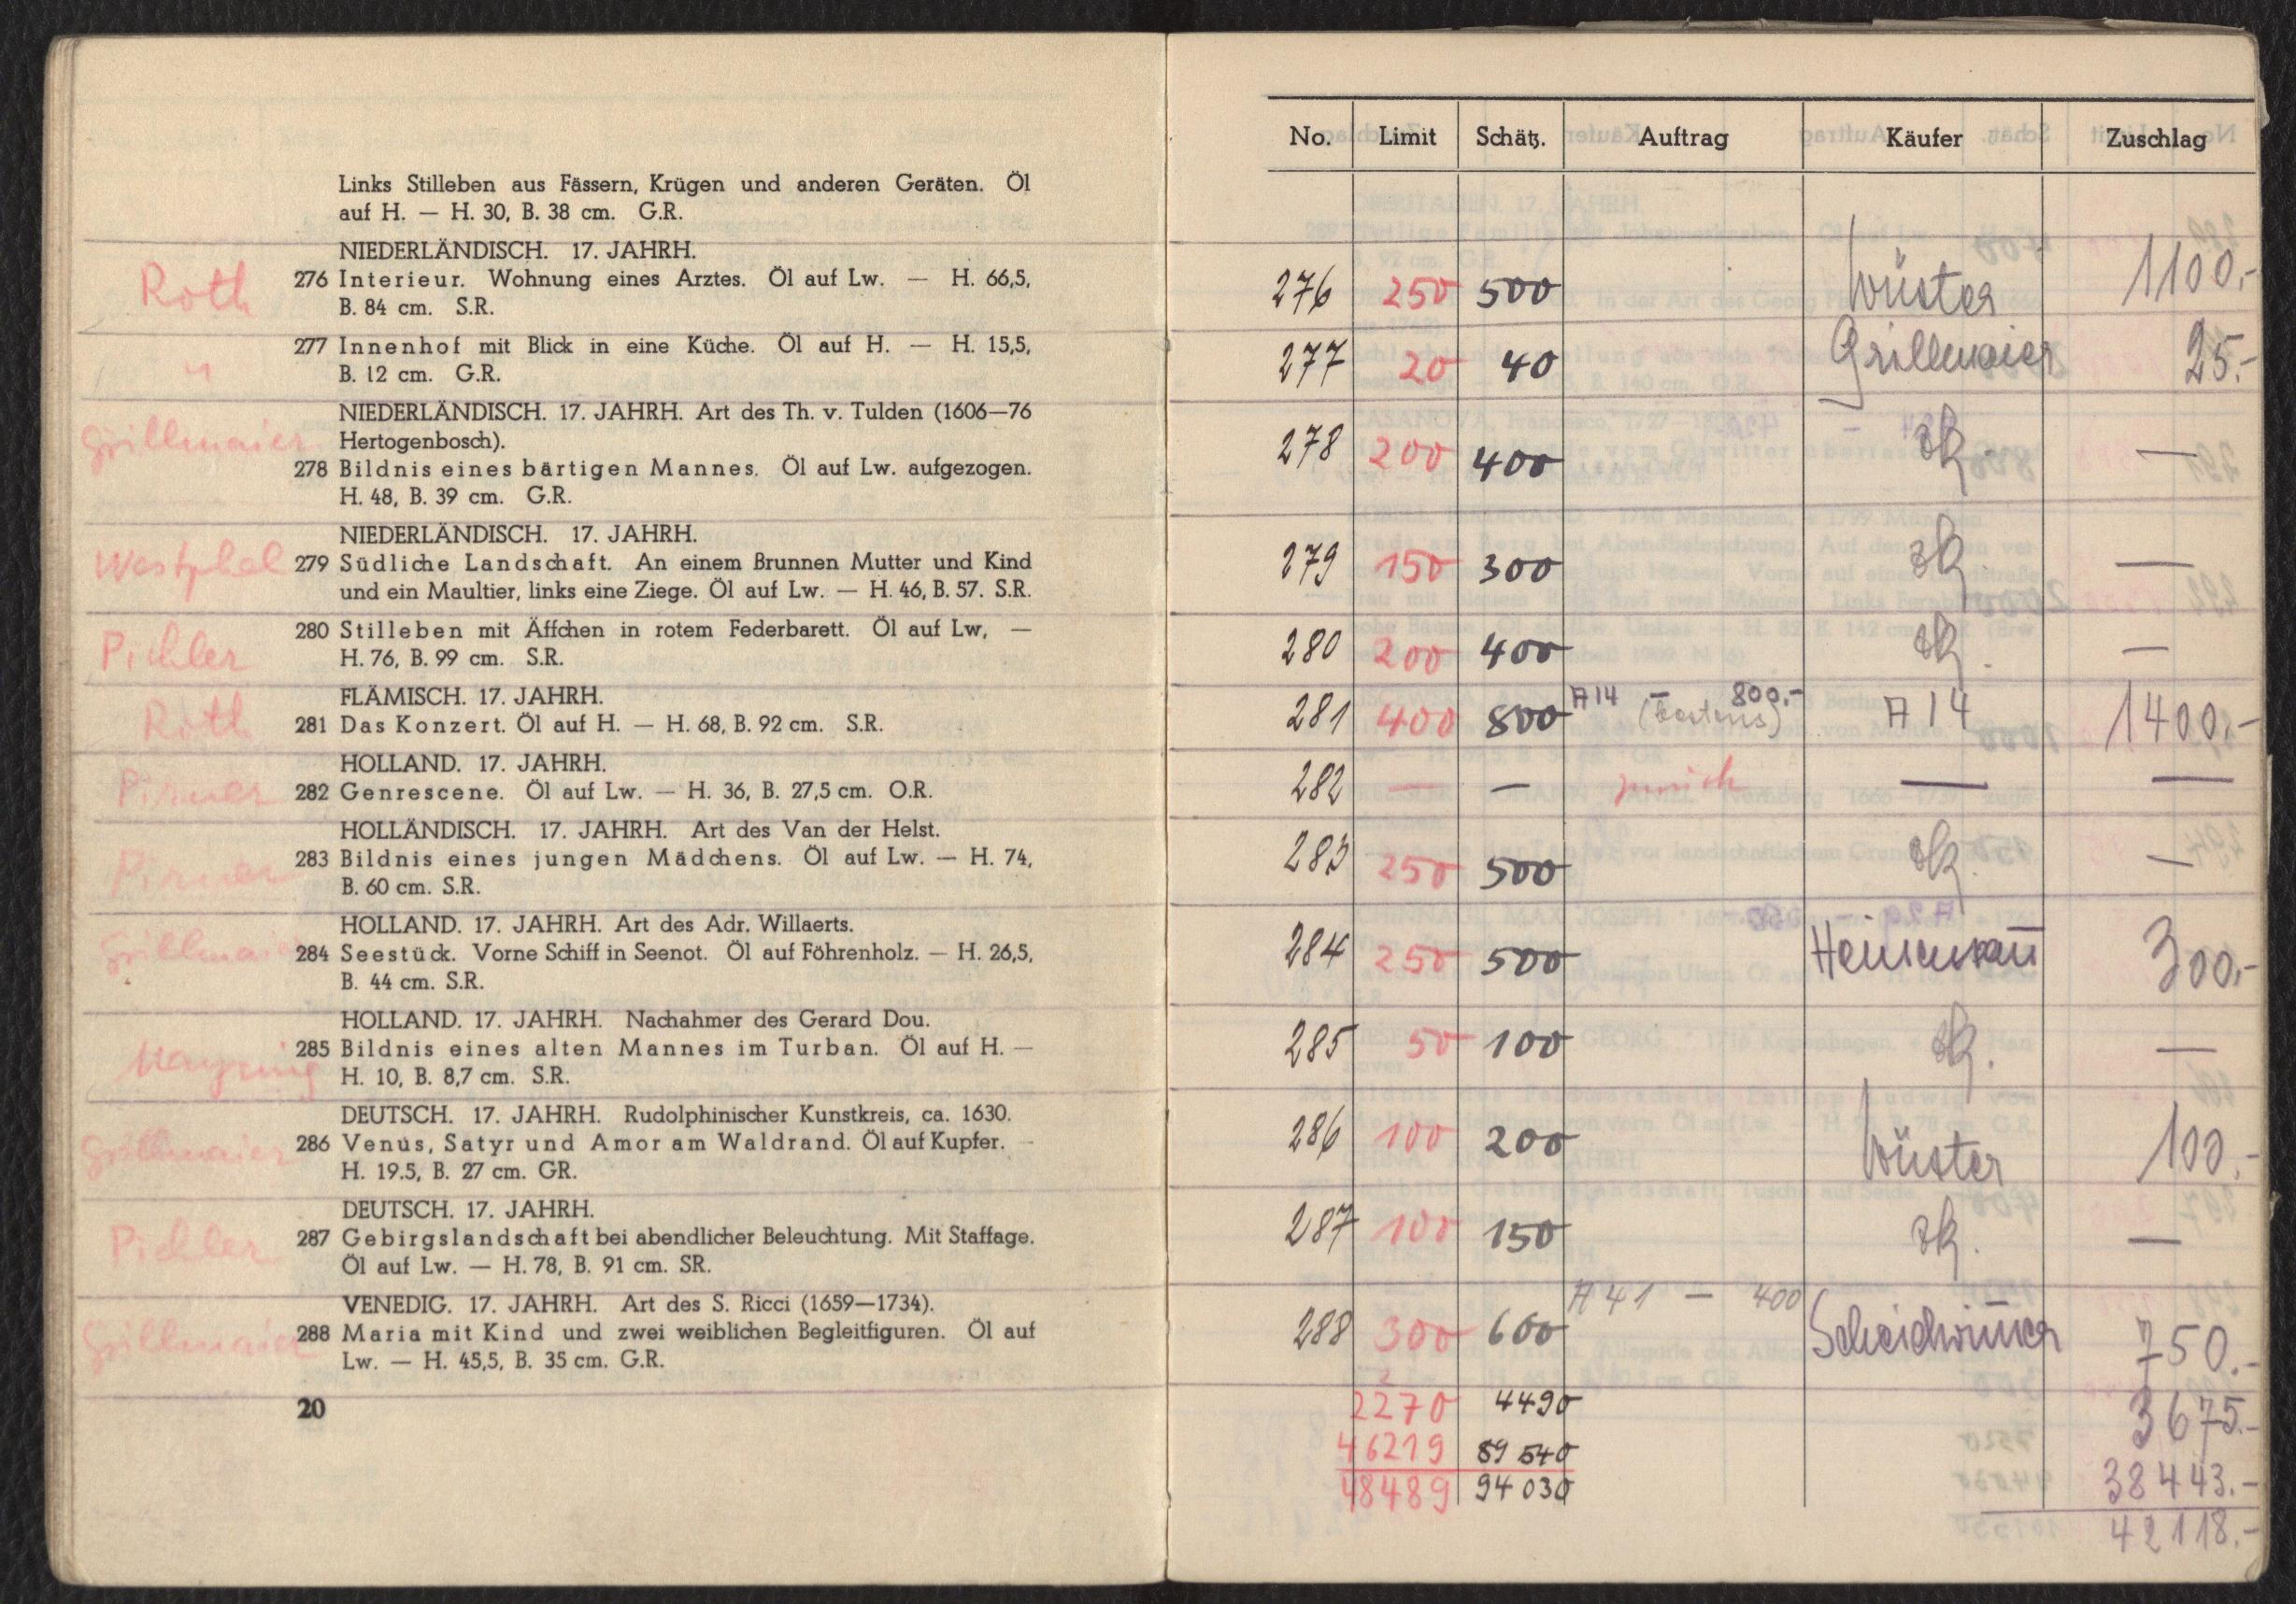 Links Stilleben aus Fässern, Krügen und anderen Geräten. Öl
auf H. — H. 30, B. 38 cm. G.R.
NIEDERLÄNDISCH. 17. JAHRH.
Roth 276 Interieur. Wohnung eines Arztes. Öl auf Lw. — H. 66,5,
B. 84 cm. S.R.
" 277 Innenhof mit Blick in eine Küche. Öl auf H. — H. 15,5,
B. 12 cm. G.R.
NIEDERLÄNDISCH. 17. JAHRH. Art des Th. v. Tulden (1606—76
Grillmaier Hertogenbosch).
278 Bildnis eines bärtigen Mannes. Öl auf Lw. aufgezogen.
H. 48, B. 39 cm. G.R.
NIEDERLÄNDISCH. 17. JAHRH.
Westphal 279 Südliche Landschaft. An einem Brunnen Mutter und Kind
und ein Maultier, links eine Ziege. Öl auf Lw. — H. 46, B. 57. S.R.
280 Stilleben mit Äffchen in rotem Federbarett. Öl auf Lw, —
Pichler H. 76, B. 99 cm. S.R.
FLÄMISCH. 17. JAHRH.
Roth 281 Das Konzert. Öl auf H. — H. 68, B. 92 cm. S.R.
HOLLAND. 17. JAHRH.
Pirner 282 Genrescene. Öl auf Lw. — H. 36, B. 27,5 cm. O.R.
HOLLÄNDISCH. 17. JAHRH. Art des Van der Helst.
Pirner 283 Bildnis eines jungen Mädchens. Öl auf Lw. — H. 74,
B. 60 cm. S.R.
HOLLAND. 17. JAHRH. Art des Adr. Willaerts.
Grillmaier 284 Seestück. Vorne Schiff in Seenot. Öl auf Föhrenholz. — H. 26,5,
B. 44 cm. S.R.
HOLLAND. 17. JAHRH. Nachahmer des Gerard Dou.
285 Bildnis eines alten Mannes im Turban. Öl auf H. —
H. 10, B. 8,7 cm. S.R.
DEUTSCH. 17. JAHRH. Rudolphinischer Kunstkreis, ca. 1630.
Grillmaier 286 Venus, Satyr und Amor am Waldrand. Öl auf Kupfer. —
H. 19.5, B. 27 cm. GR.
DEUTSCH. 17. JAHRH.
Pichler 287 Gebirgslandschaft bei abendlicher Beleuchtung. Mit Staffage.
Öl auf Lw. — H. 78, B. 91 cm. SR.
VENEDIG. 17. JAHRH. Art des S. Ricci (1659—1734).
Grillmaier 288 Maria mit Kind und zwei weiblichen Begleitfiguren. Öl auf
Lw. — H. 45,5, B. 35 cm. G.R.
20
No. Limit Schätz. Auftrag Käufer Zuschlag
276 250 500 Wüster 1100.-
277 20 40 Grillmaier 25.-
278 200 400 —
279 150 300 —
280 200 400 —
281 400 800 A 14 — 800.- A 14 1400.-
282 — — zurück — —
283 250 500 —
284 250 500 300.-
285 50 100 —
286 100 200 Wüster 100.-
287 100 150 —
288 300 600 A 41 — 400 Scheidwimmer 750.-
2270 4490 3675.-
46219 89 540 38443.-
48489 94 030 42118.-